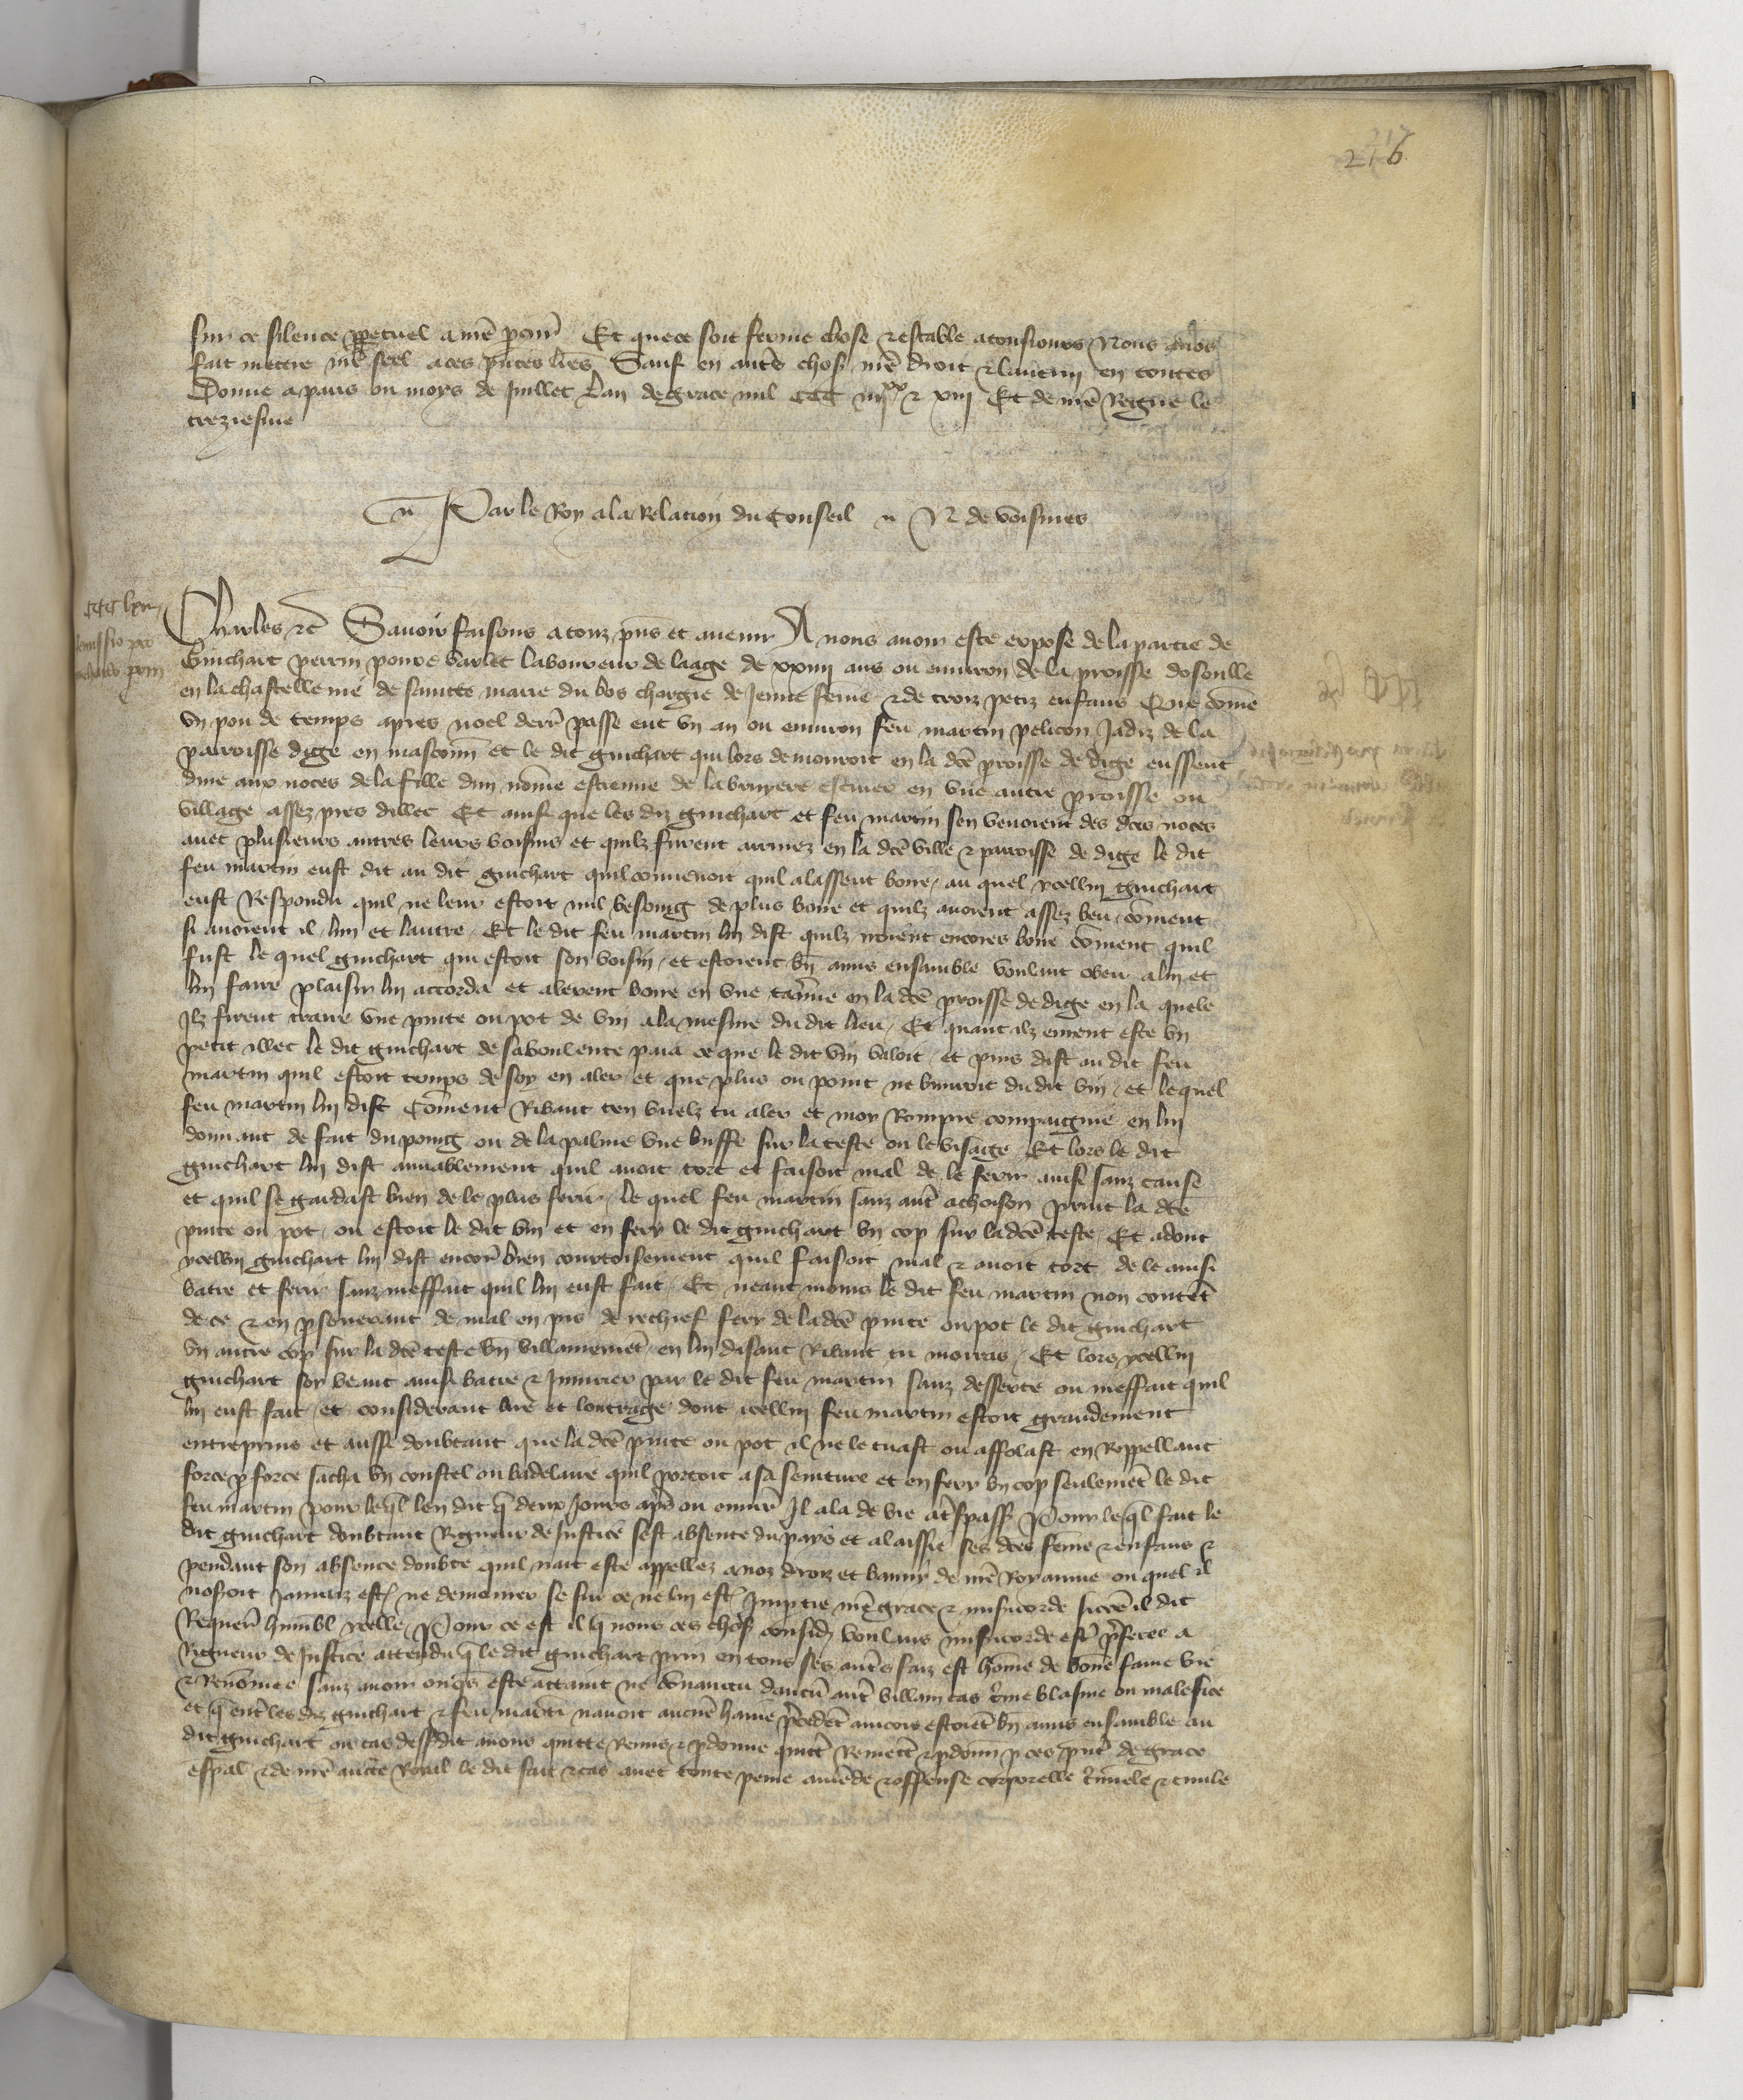 216
sur ce silence ppetuel a nre pcur Et que ce soit ferme chose & estable a tousiours Nous avos
fait mettre nre seel a ces pntes lres Sauf en autes chos nre droit & lautruy en toutes
Donne a paris ou moys de Juillet Lan de grace mil CCC iiijxx & xiij Et de nre Regne le
treziesme
Par le Roy a la Relacion du Conseil N de voisines
Charles &c Savoir faisons a touz pns et avenir A nous avoir este expose de la partie de
Guichart perrin povre varlet laboureur de laage de xxiiij ans ou environ de la proisse dosoulle
en la chastellenie de saincte marie du bos chargie de Jeune feme & de trois petiz enfans Que come
un pou de temps apres noel derr passe eut un an ou environ feu martin pelicon Jadiz de la
parroisse dige en masconn et le dit guichart qui lors demouroit en la dce proisse de dige eussent
dine aux noces de la fille dun nome estienne de la bruyere en une autre proisse ou
village assez pres dillec Et ainsi que les diz guichart et feu martin sen venoient des dces noces
avec plusieurs autres leurs voisins et quilz furent arrivez en la dce ville & parroisse de dige le dit
feu martin eust dit au dit guichart quil convenoit quil alassent boire au quel ycellui guichart
eust Respondu quil ne leur estoit nul besoing de plus boire et quilz avoient assez beu coment
si avoient il lun et lautre Et le dit feu martin lui dist quilz yroient encores boire coment quil
fust le quel guichart qui estoit son voisin et estoient bn amis ensamble voulant obeir a lui et
lui faire plaisir lui accorda et alerent boire en une taverne en la dce proisse de dige en la quele
Ilz firent traire une pinte ou pot de vin a la mesure du dit lieu Et quant ilz eurent este un
petit illec le dit guichart de sa voulente paia ce que le dit vin valoit et puis dist au dit feu
martin quil estoit temps de soy en aler et que plus ou point ne buvroit du dit vin et le quel
feu martin lui dist Coment Ribaut ten vuelz tu aler et moy Rompre compaignie en lui
donnant de fait du poing ou de la palme une buffe sur la teste ou le visaige Et lors le dit
guichart lui dist amiablement quil avoit tort et faisoit mal de le ferir ainsi sanz cause
et quil se gardast bien de le plus ferir le quel feu martin sanz aut achoison print la dce
pinte ou pot ou estoit le dit vin et en fery le dit guichart un cop sur la dce teste Et adont
ycellui guichart lui dist encor bien courtoisement quil faisoit mal & avoit tort de le ainsi
batre et ferir sanz meffait quil lui eust fait Et neantmoins le dit feu martin non content
de ce & en pseverant de mal en pis de rechief fery de la dce pinte ou pot le dit guichart
un autre cop sur la dce teste bn villainement en lui disant Ribaut tu morras Et lors ycellui
guichart soy veant ainsi batre & Iniurier par le dit feu martin sanz desserte ou meffait quil
lui eust fait et considerant lire et loutrage dont icellui feu martin estoit grandement
entreprins et aussi doubtant que la dce pinte ou pot il ne le tuast ou affolast en Reppellant
force p force sacha un coustel ou badelaire quil portoit a sa seinture et en fery un cop seulement le dit
feu martin pour leql len dit q deux Jours aps ou envir Il ala de vie a tspass Pour leql fait le
dit guichart doubtant Rigueur de Justice sest absente du pays et a laissie ses dces feme & enfans &
pendant son absence doubte quil nait este appellez a noz droiz et banny de nre Royaume ou quel il
noseroit Jamaiz est ne demourer se sur ce ne lui est Impartie nre grace & misicorde sicome il dit
Requer humbl ycelle Pour ce est il q nous ces choses considere voulans misicorde estre pferee a
Rigueur de Justice attendu q le dit guichart prin en tous ses autes faiz est home de bone fame vie
& Renomee sanz avoir onqs este attaint ne convaincu daucu aut villain cas crime blasme ou malefice
et q ent les diz guichart & feu martin navoit aucune haine pcedent aincois estoient bn amis ensamble au
dit guichart ou cas dessdit avons quitte Remis & pdonne quitt Remett & pdonn p ces pnt de grace
espal & de nre aucte Royal le dit fait & cas avec toute peine amende & offense corporelle crminele & civile